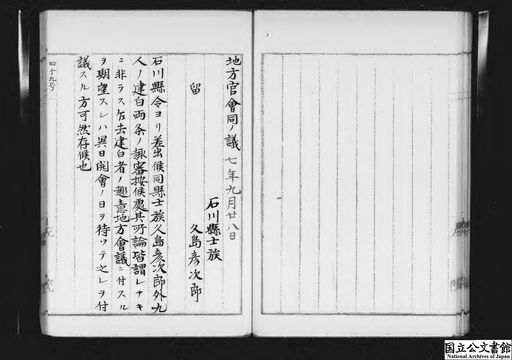 地方官會同ノ議 七年九月廿八日
留
石川縣士族
久島彦次郎
石川縣令ヨリ差出候同縣士族久島彦次郎外九
人ノ建白両条ノ趣審按候處其所論皆謂レナキ
ニ非ラス乍去建白者ノ趣意地方會議ニ付スル
ヲ期望スレハ異日開會ノ日ヲ待ツテ之レヲ付
議スル方可然存候也
四十九号
国立公文書館
National Archives of Japan